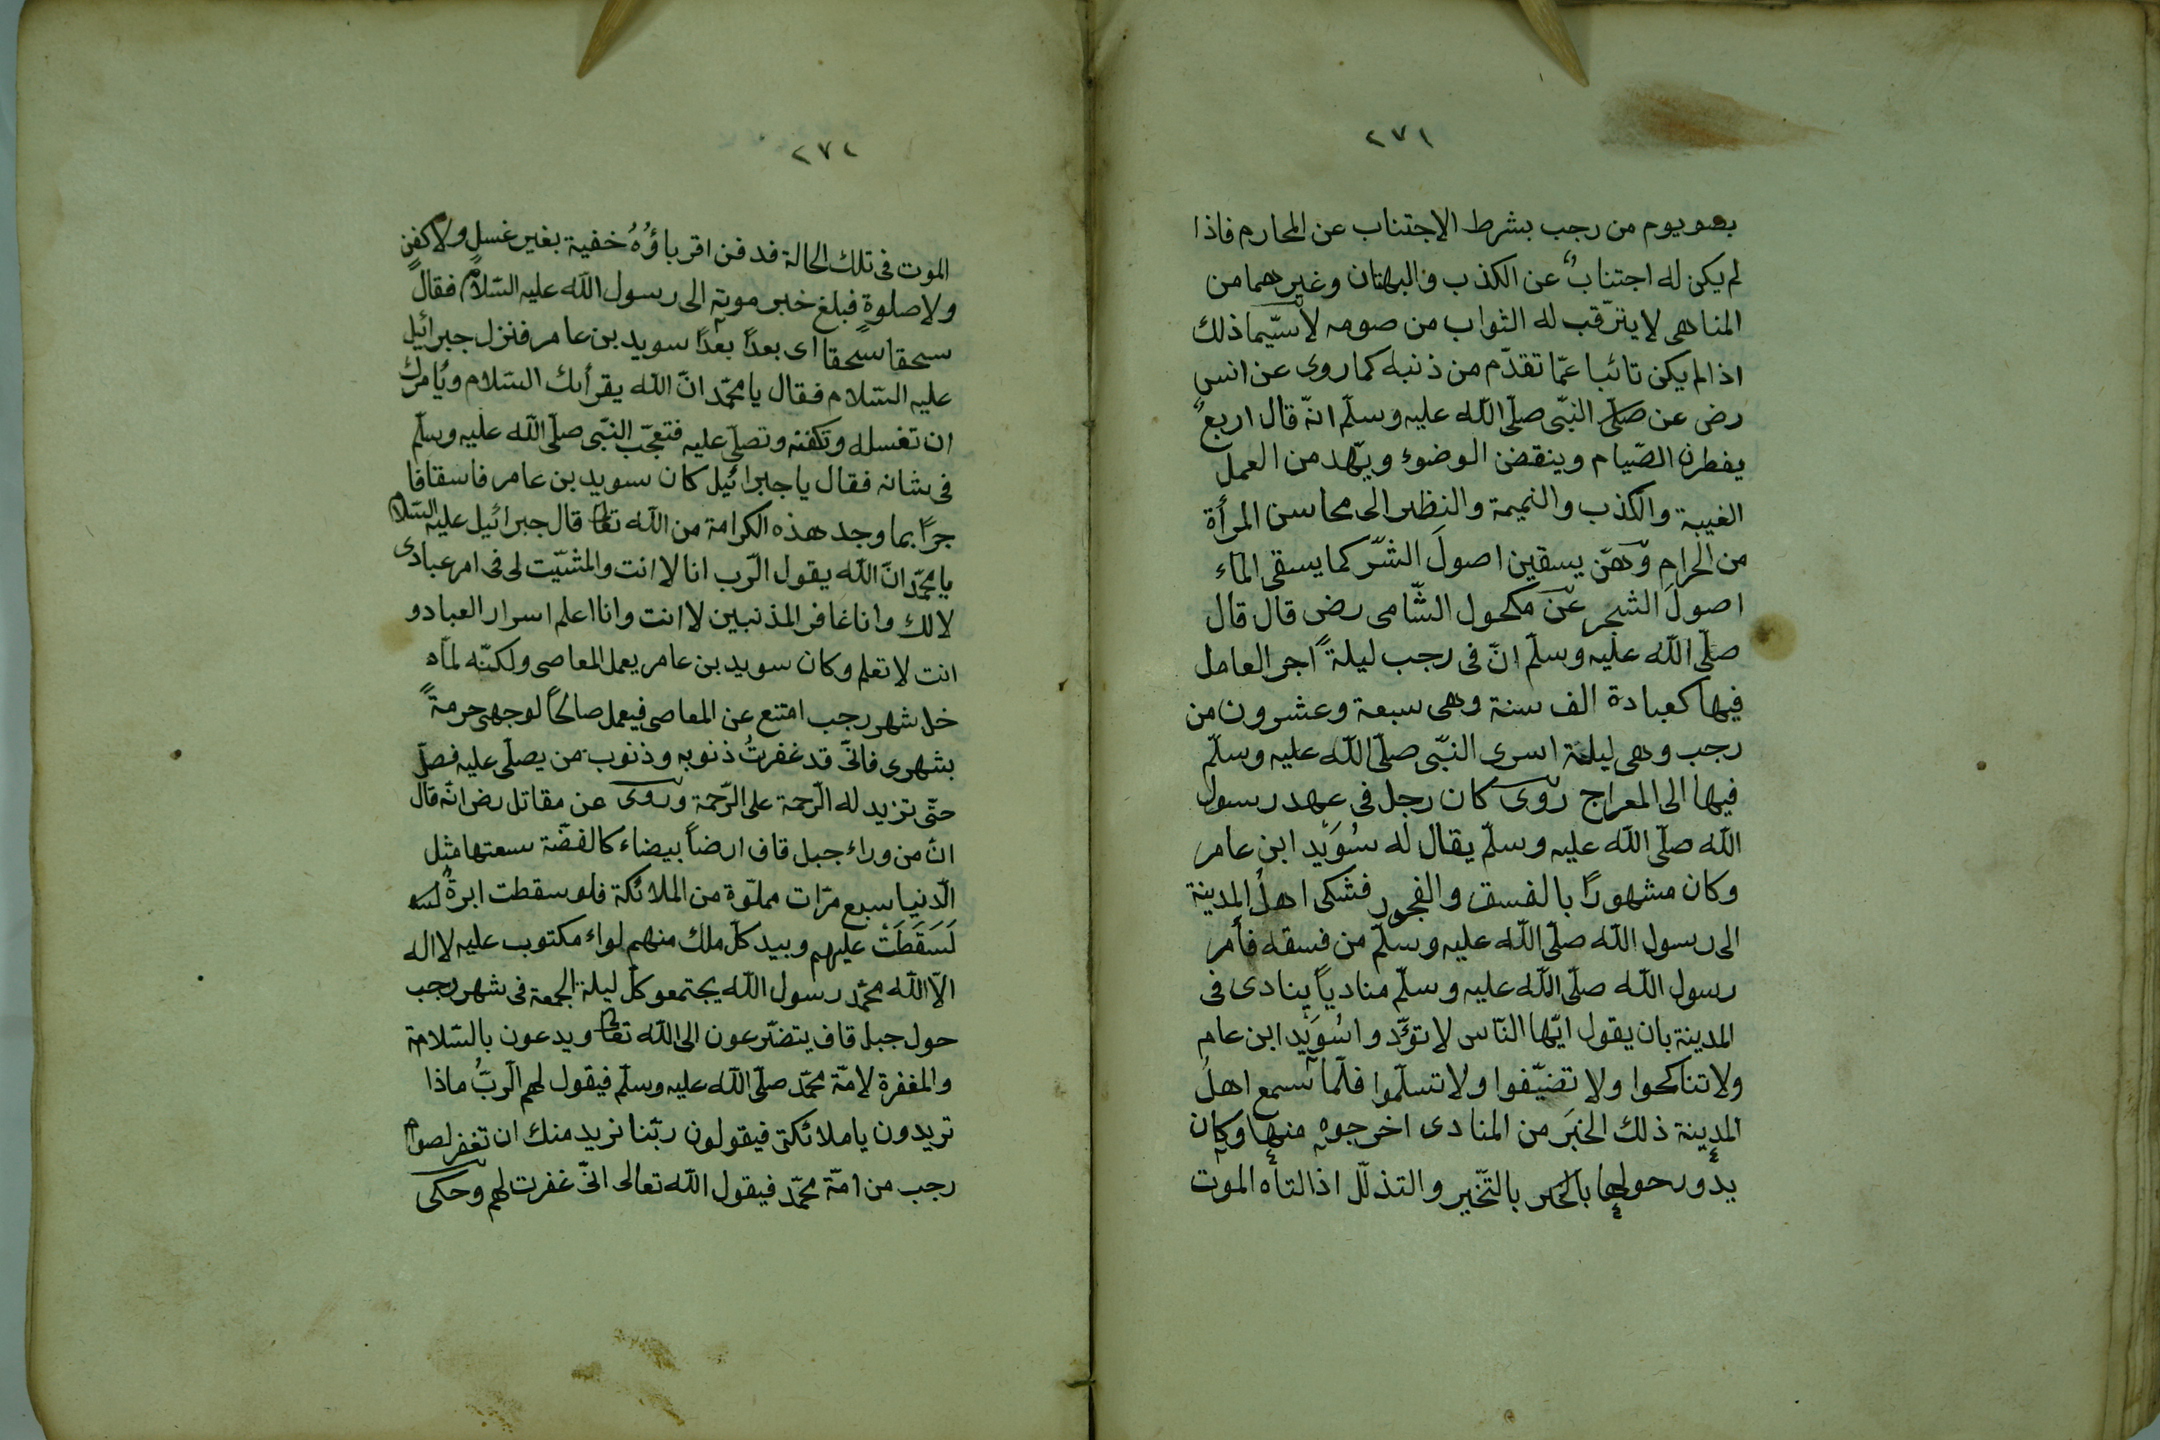 ٢٧١
بصو يوم من رجب بشرط الاجتناب عن المحارم فاذا
لم يكن له اجتنابٌ عن الكذب والبهتان وغيرهما من
المناهى لا يترّقب له الثواب من صومه لا سيّما ذلك
اذا لم يكن تائبا عمّا تقدّم من ذنبه كما روى عن انس
رض عن صلى النبّى صلّى اللّه عليه وسلّم انّه قال اربعٌ
يفطرن الصّيام وينقض الوضوء ويهّد من العمل
الغيبة والكذب والنميمة والنظر الى محاسن المرأة
من الحرام وهنّ يسقين اصولَ الشرّ كما يسقى الماء
اصولَ الشجر عن مكحول الشّامى رض قال قال
صلّى اللّه عليه وسلّم انّ فى رجب ليلةً اجر العامل
فيها كعبادة الف سنة وهى سبعة وعشرون من
رجب وهى ليلة اسرى النبّى صلّى اللّه عليه وسلّم
فيها الى المعراج روى كان رجل فى عهد رسول
اللّه صلّى اللّه عليه وسلّم يقال له سُوَيْد ابن عامر
وكان مشهورًا بالفسق والفجور فشكى اهلُ المدينة
الى رسول اللّه صلّى اللّه عليه وسلّم من فسقه فأمر
رسول اللّه صلّى اللّه عليه وسلّم مناديًا ينادى فى
المدينة بان يقول ايّها النّاس لا تؤّدوا سُوَيْد ابن عامر
ولا تناكحوا ولا تضيّفوا ولا تسلّموا فلمّا سمع اهلُ
المدينة ذلك الخبَر من المنادى اخرجوه منها وكان
يدور حولها بالتخّير والتذلّل اذا اتاه الموت
٢٧٢
الموت فى تلك الحالة فدفن اقرباؤُهُ خفية بغير غسلٍ ولا كفنٍ
ولا صلوةٍ فبلغ خبر موته الى رسول اللّه عليه السّلام فقال
سحقا سحقا اى بعدًا بعدًا سويد بن عامر فنزل جبرائيل
عليه السّلام فقال يا محمّد انّ اللّه يقرأك السّلام ويُأمرك
ان تغسله وتكفنه وتصلّى عليه فتعجّب النبّى صلّى اللّه عليه وسلّم
فى شانه فقال يا جبرائيل كان سويد بن عامر فاسقا فا
جرًا بما وجد هذه الكرامة من اللّه تعا قال جبرائيل عليه السّلا
يا محمّد انّ اللّه يقول الرّب انا لا انت والمشيّت لى فى امر عبادى
لا لك وانا غافر المذنبين لا انت وانا اعلم اسرار العباد و
انت لا تعلم وكان سويد بن عامر يعمل المعاصى ولكنّه لمّاه
خل شهر رجب امتنع عن المعاصى فيعمل صالحًا لوجهى حرمةً
بشهرى فانّى قد غفرتُ ذنوبه وذنوب من يصلّى عليه فصلّ
حتّى تزيد له الرّحمة على الرّحمة وروى عن مقاتل رض انّه قال
انّ من وراء جبل قاف ارضاً بيضاء كالفضّة سعتها مثل
الدّنيا سبع مرّات مملوّة من الملائكة فلو سقطت ابرةٌ
لَسَقَطَتْ عليهم وبيد كلّ ملك منهم لواء مكتوب عليه لا اله
الّا اللّه محمّد رسول اللّه يجتمعو كلّ ليلة الجمعة فى شهر رجب
حول جبل قاف يتضرّعون الى اللّه تعا ويدعون بالسّلامة
والمغفرة لامّة محمّد صلّى اللّه عليه وسلّم فيقول لهم الرّبُ ماذا
تريدون يا ملائكتى فيقولون ربّنا نريد منك ان تغفر لصوام
رجب من امّة محمّد فيقول اللّه تعالى انّى غفرت لهم وحكى